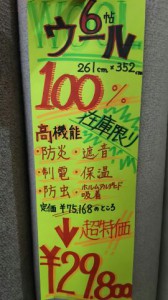 6帖
ウール
261cm×352cm
100%
在庫限り
高機能
・防炎・遮音
・制電・保温
・防虫・ホルムアルデヒド吸着
定価 ¥75,168のところ
↓超特価
¥29.800